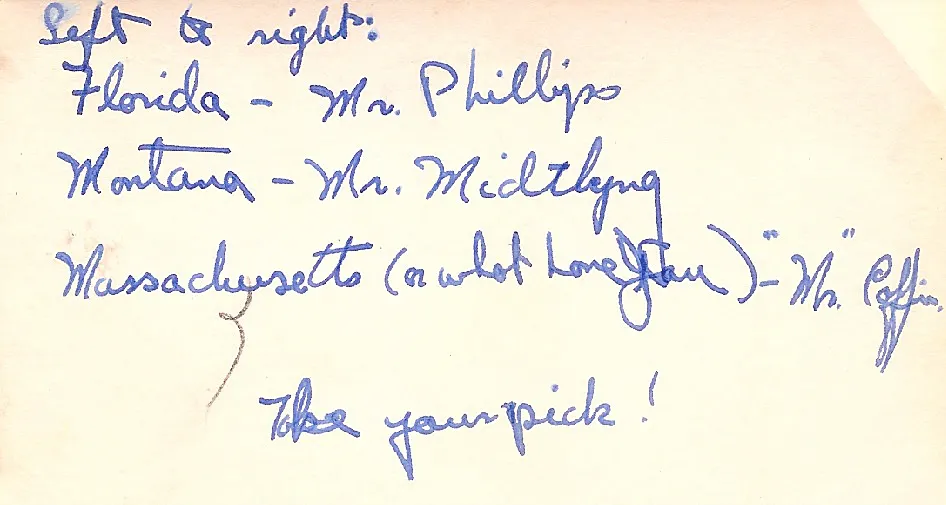 Left to right:
Florida - Mr. Phillips
Montana - Mr. Midtlyng
Massachusetts (or what have you) - "Mr." Coffin.
Take your pick!